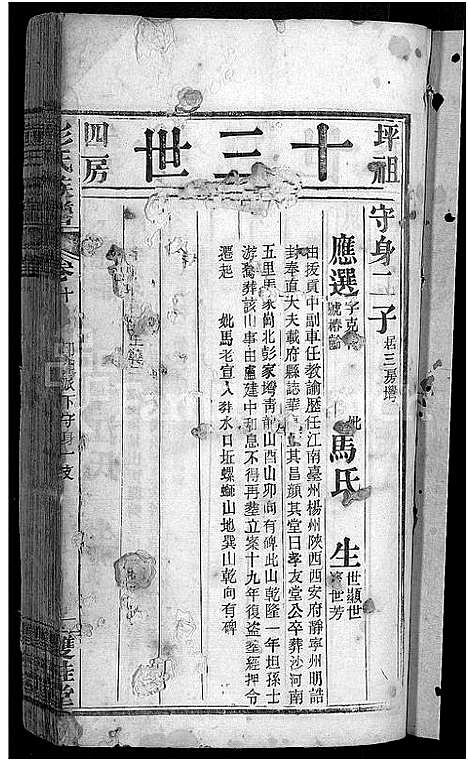 坪祖
十三世
四房
守身二子 居三房灣
應選 字克 號椿齡
妣 馬氏 生 世顯 世 世芳
由拔貢中副車任教諭歷任江南臺州楊州陝西西安府靜寧州明誥
封奉直大夫載府縣誌華 其昌顏其堂曰孝友堂公卒葬沙河南
五里馬家尚北彭家塆靑龍山酉山卯向有碑此山乾隆一年坦孫士
游 葬該山事由盧建中和息不得再塟立案十九年復盜塟經押令
遷起 妣馬老宜人葬水口坵螺螄山地巽山乾向有碑
彭氏族譜
卷十
守身
支
雙桂堂